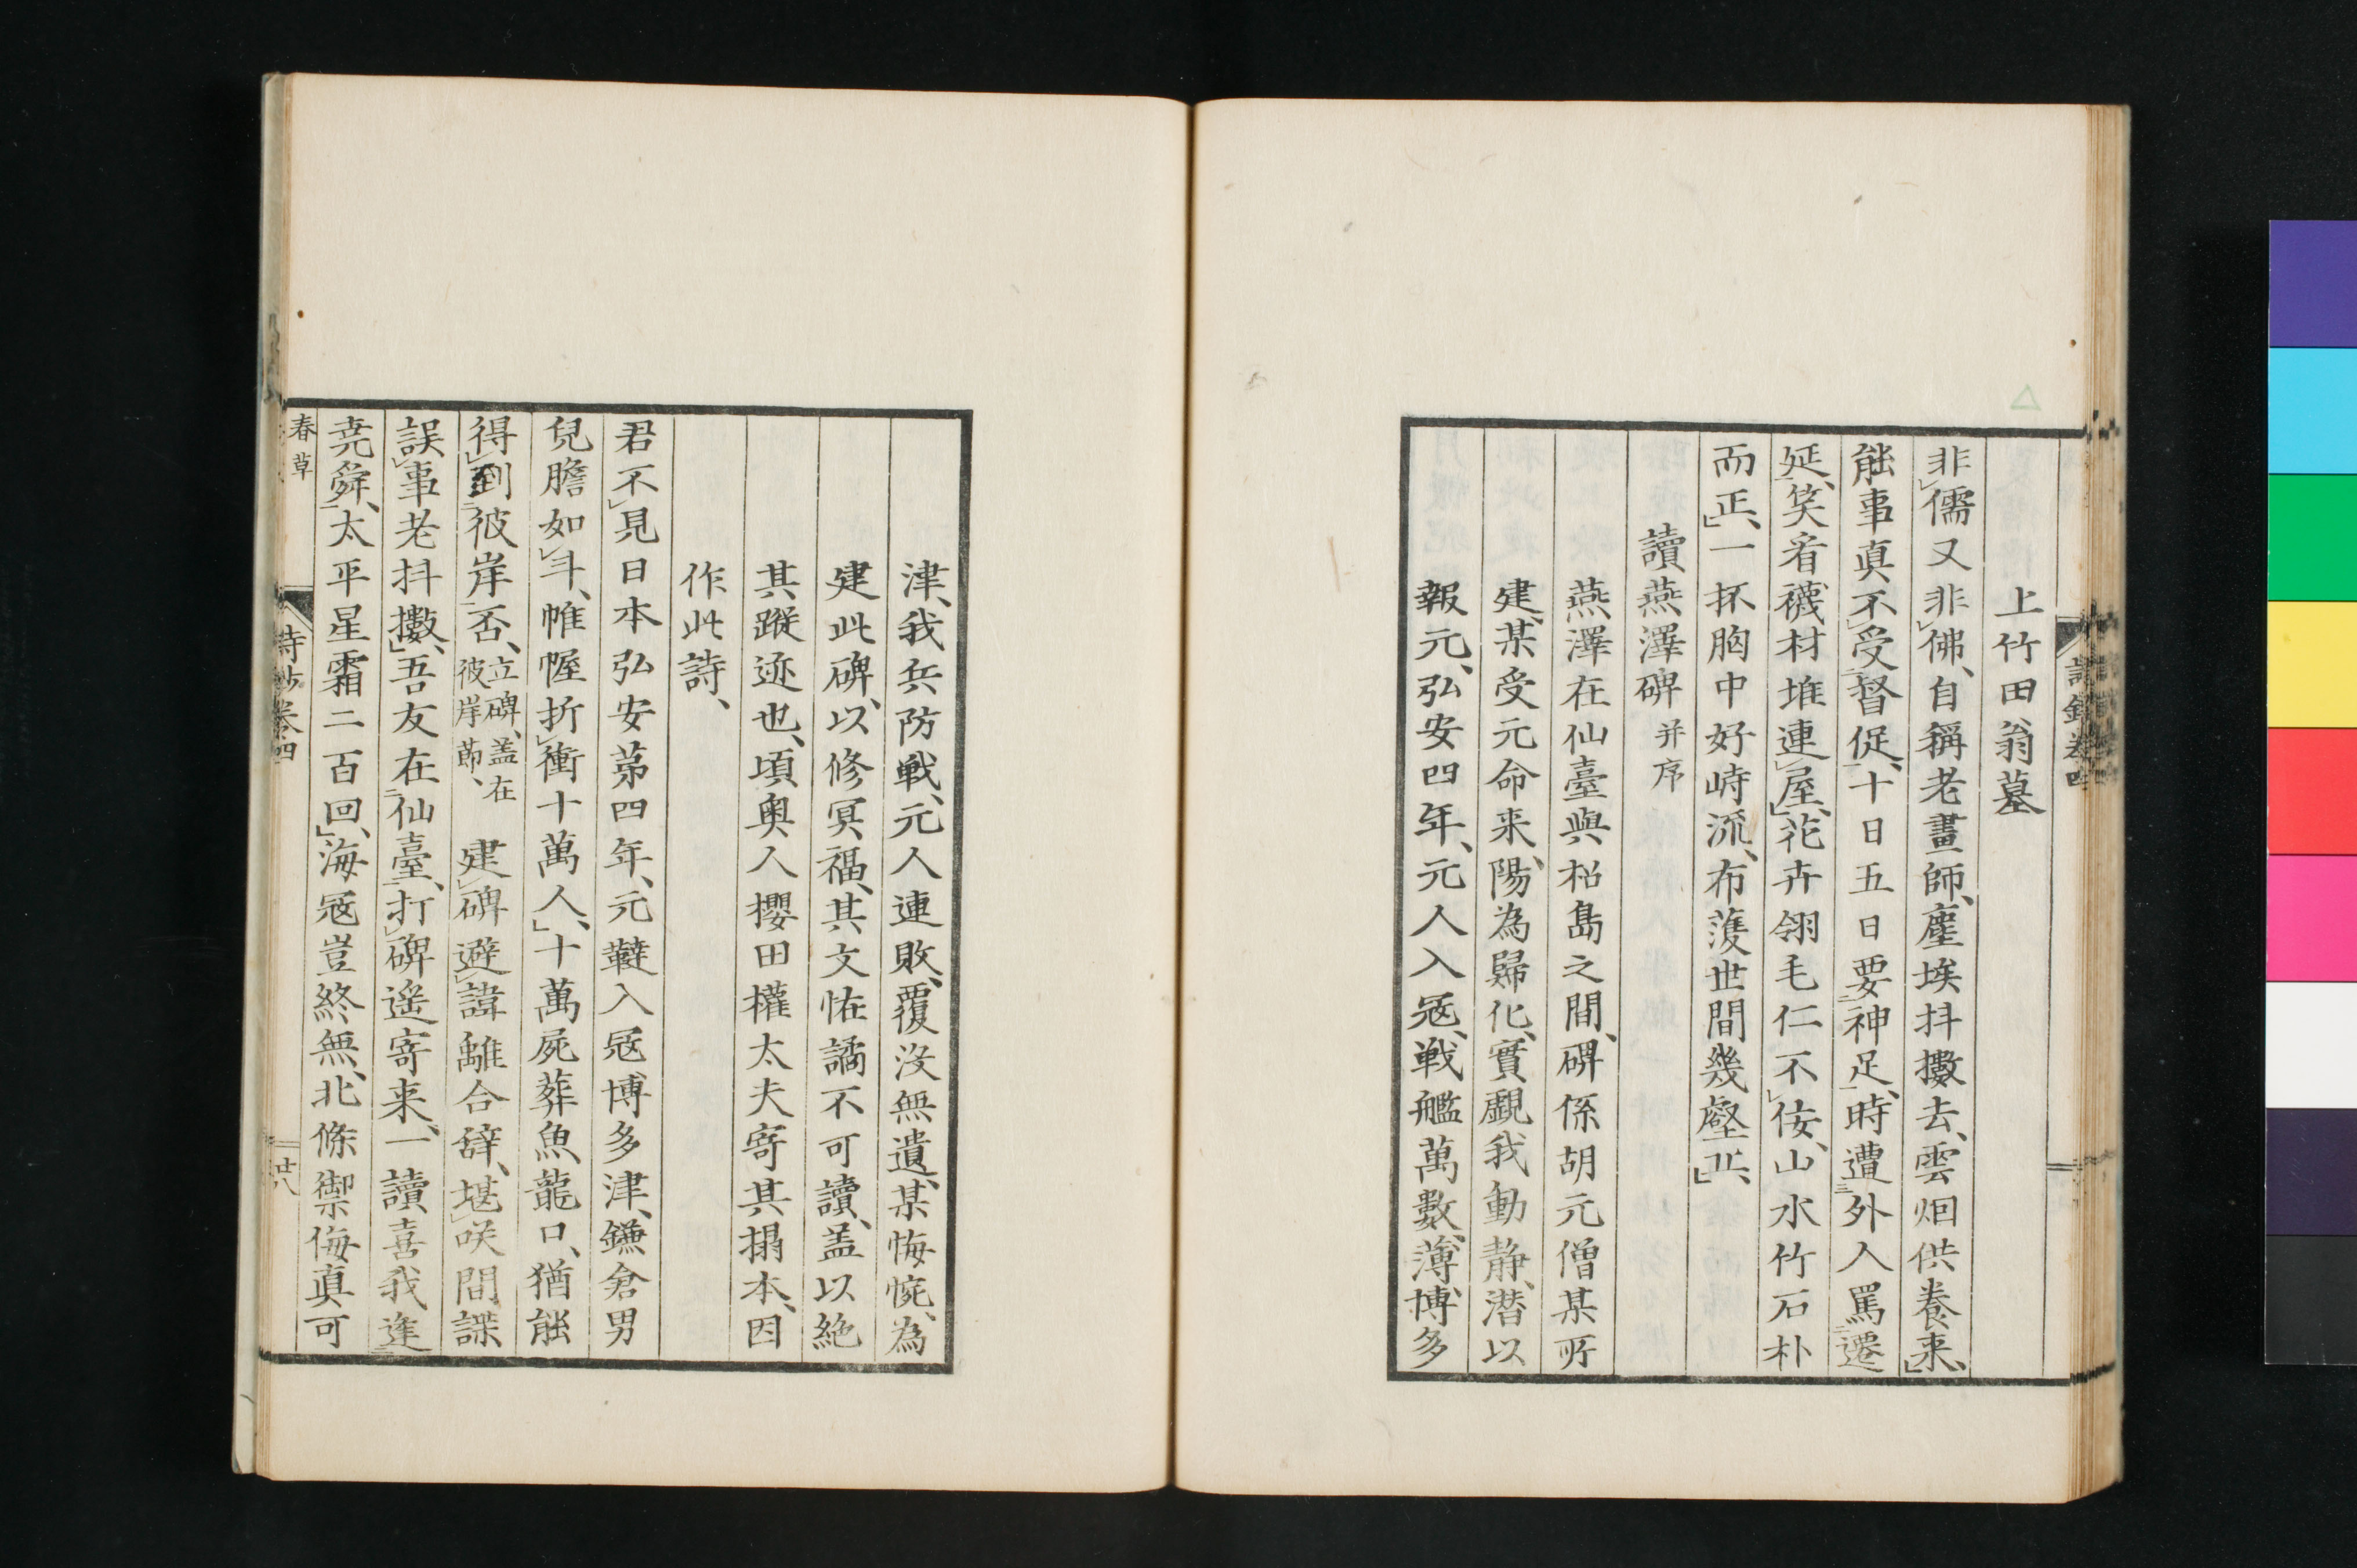 上竹田翁墓
非儒又非佛、自稱老畫師、塵埃抖擻去、雲烟供養来、
能事真不受督促、十日五日要神足、時遭外人罵遷
延、笑看襪材堆連屋、花卉翎毛仁不佞、山水竹石朴
而正、一抔胸中好峙流、布濩世間幾壑丘、
讀燕澤碑并序
燕澤在仙臺與松島之間、碑係胡元僧某所
建、某受元命来、陽為歸化、實覷我動静、潜以
報元、弘安四年、元人入寇、戦艦萬數、薄博多
津、我兵防戦、元人連敗、覆没無遺、某悔惋、為
建此碑、以修冥福、其文恠譎不可讀、盖以絶
其蹤迹也、頃奥人櫻田權太夫寄其搨本、因
作此詩、
君不見日本弘安第四年、元韃入寇博多津、鎌倉男
兒膽如斗、帷幄折衝十萬人、十萬屍葬魚龍口、猶能
得到彼岸否、立碑、盖在彼岸節、建碑避諱離合辞、堪咲間諜
誤事老抖擻、吾友在仙臺、打碑遥寄来、一讀喜我逢
堯舜、太平星霜二百回、海寇豈終無、北條禦侮真可
春草
詩鈔卷四
廿八